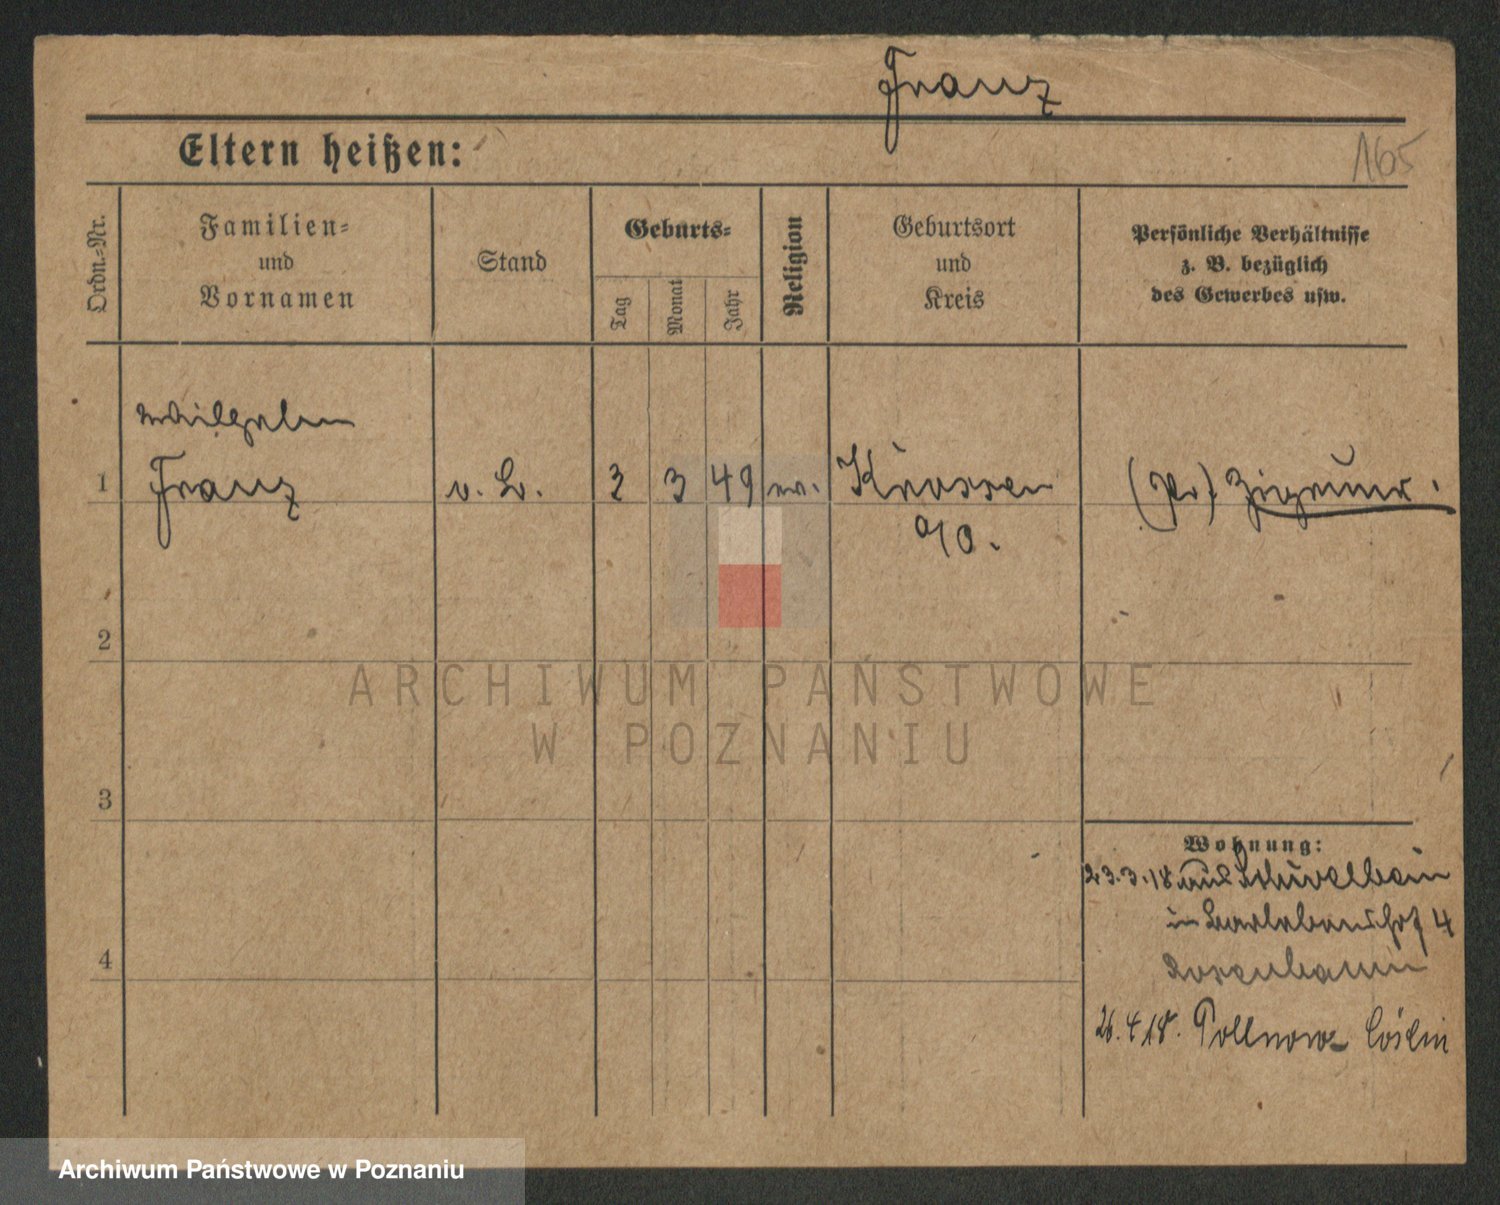 Franz
165
Eltern heißen:
Ordn.-Nr.
Familien-
und
Vornamen
Stand
Geburts-
Tag
Monat
Jahr
Religion
Geburtsort
und
Kreis
Persönliche Verhältnisse
z. B. bezüglich
des Gewerbes usw.
Wilhelm
1 Franz v. B. 2 3 49 ev. Krossen
a/O.
2
3
4
Wohnung:
23.3.18 aus Schivelbein
in 4
26.4.18. Pollnow Cöslin
ARCHIWUM PAŃSTWOWE
W POZNANIU
Archiwum Państwowe w Poznaniu